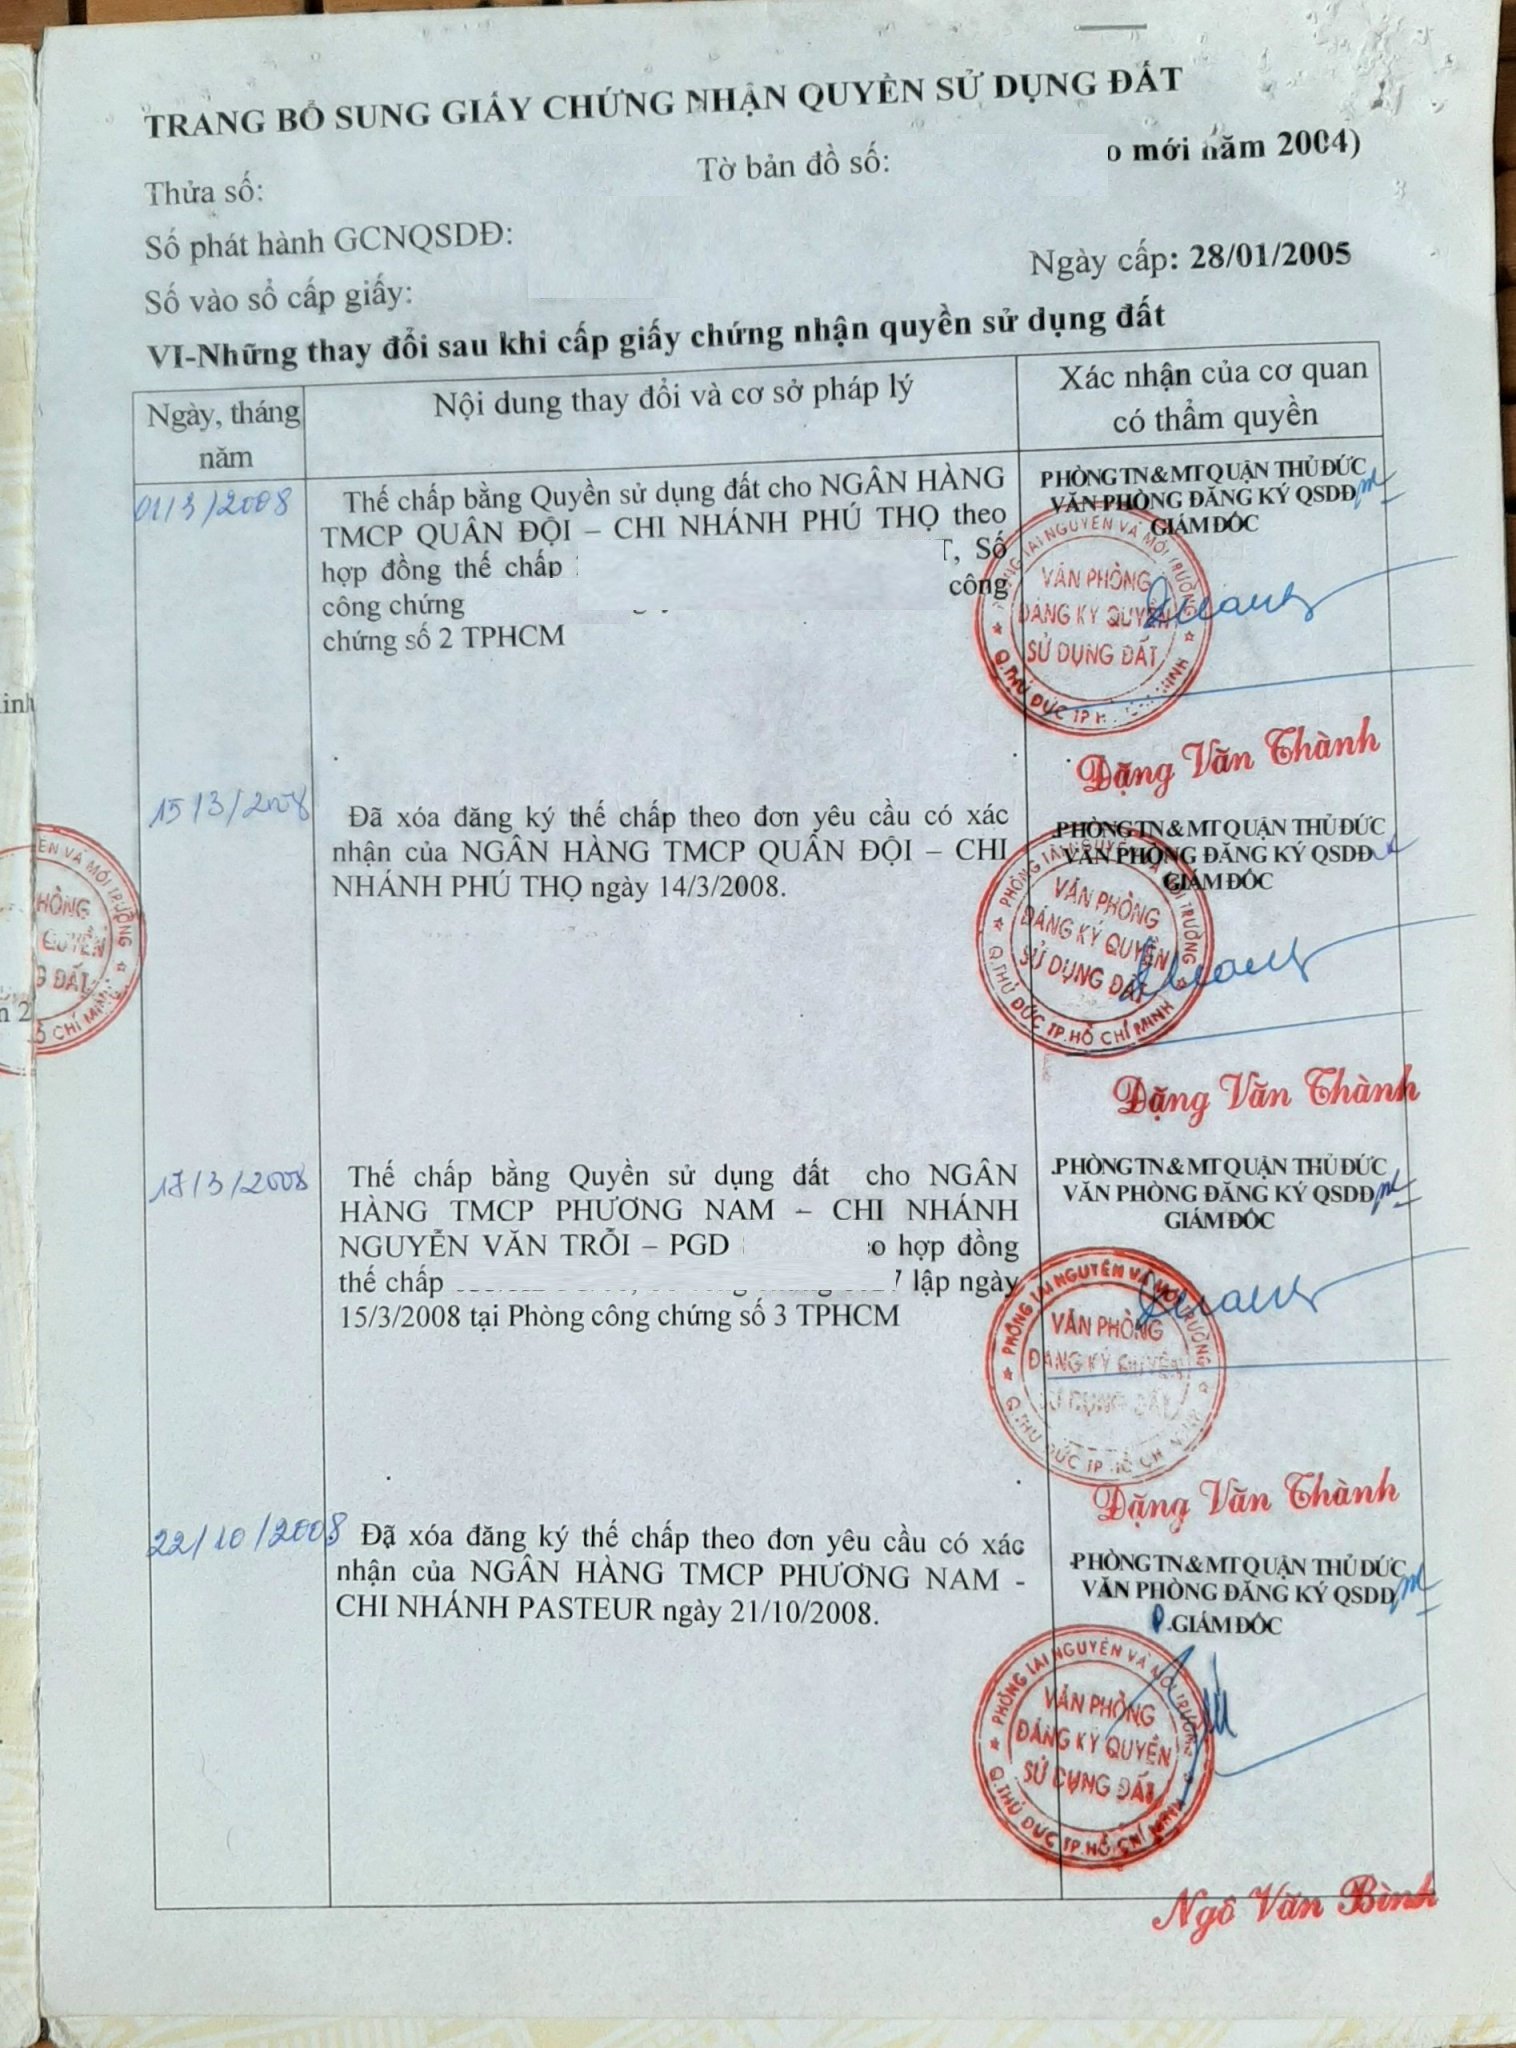 TRANG BỔ SUNG GIẤY CHỨNG NHẬN QUYỀN SỬ DỤNG ĐẤT
Thửa số: Tờ bản đồ số: o mới năm 2004)
Số phát hành GCNQSDĐ:
Số vào sổ cấp giấy: Ngày cấp: 28/01/2005
VI-Những thay đổi sau khi cấp giấy chứng nhận quyền sử dụng đất
Ngày, tháng
năm
Nội dung thay đổi và cơ sở pháp lý
Xác nhận của cơ quan
có thẩm quyền
01/3/2008
Thế chấp bằng Quyền sử dụng đất cho NGÂN HÀNG
TMCP QUÂN ĐỘI – CHI NHÁNH PHÚ THỌ theo
hợp đồng thế chấp T, Số
công chứng công
chứng số 2 TPHCM
PHÒNG TN & MT QUẬN THỦ ĐỨC
VĂN PHÒNG ĐĂNG KÝ QSDĐ
GIÁM ĐỐC
VĂN PHÒNG
ĐĂNG KÝ QUYỀN
SỬ DỤNG ĐẤT
Đặng Văn Thành
15/3/2008
Đã xóa đăng ký thế chấp theo đơn yêu cầu có xác
nhận của NGÂN HÀNG TMCP QUÂN ĐỘI – CHI
NHÁNH PHÚ THỌ ngày 14/3/2008.
PHÒNG TN & MT QUẬN THỦ ĐỨC
VĂN PHÒNG ĐĂNG KÝ QSDĐ
GIÁM ĐỐC
PHÒNG TÀI NGUYÊN VÀ MÔI TRƯỜNG
VĂN PHÒNG
ĐĂNG KÝ QUYỀN
SỬ DỤNG ĐẤT
Q.THỦ ĐỨC TP.HỒ CHÍ MINH
Đặng Văn Thành
17/3/2008
Thế chấp bằng Quyền sử dụng đất cho NGÂN
HÀNG TMCP PHƯƠNG NAM – CHI NHÁNH
NGUYỄN VĂN TRỖI – PGD o hợp đồng
thế chấp 7 lập ngày
15/3/2008 tại Phòng công chứng số 3 TPHCM
.PHÒNG TN & MT QUẬN THỦ ĐỨC
VĂN PHÒNG ĐĂNG KÝ QSDĐ
GIÁM ĐỐC
PHÒNG TÀI NGUYÊN VÀ MÔI TRƯỜNG
VĂN PHÒNG
ĐĂNG KÝ QUYỀN
SỬ DỤNG ĐẤT
Đặng Văn Thành
22/10/2008
Đã xóa đăng ký thế chấp theo đơn yêu cầu có xác
nhận của NGÂN HÀNG TMCP PHƯƠNG NAM -
CHI NHÁNH PASTEUR ngày 21/10/2008.
PHÒNG TN & MT QUẬN THỦ ĐỨC
VĂN PHÒNG ĐĂNG KÝ QSDĐ
P.GIÁM ĐỐC
PHÒNG TÀI NGUYÊN VÀ MÔI TRƯỜNG
VĂN PHÒNG
ĐĂNG KÝ QUYỀN
SỬ DỤNG ĐẤT
Q.THỦ ĐỨC TP.HỒ CHÍ MINH
Ngô Văn Bình